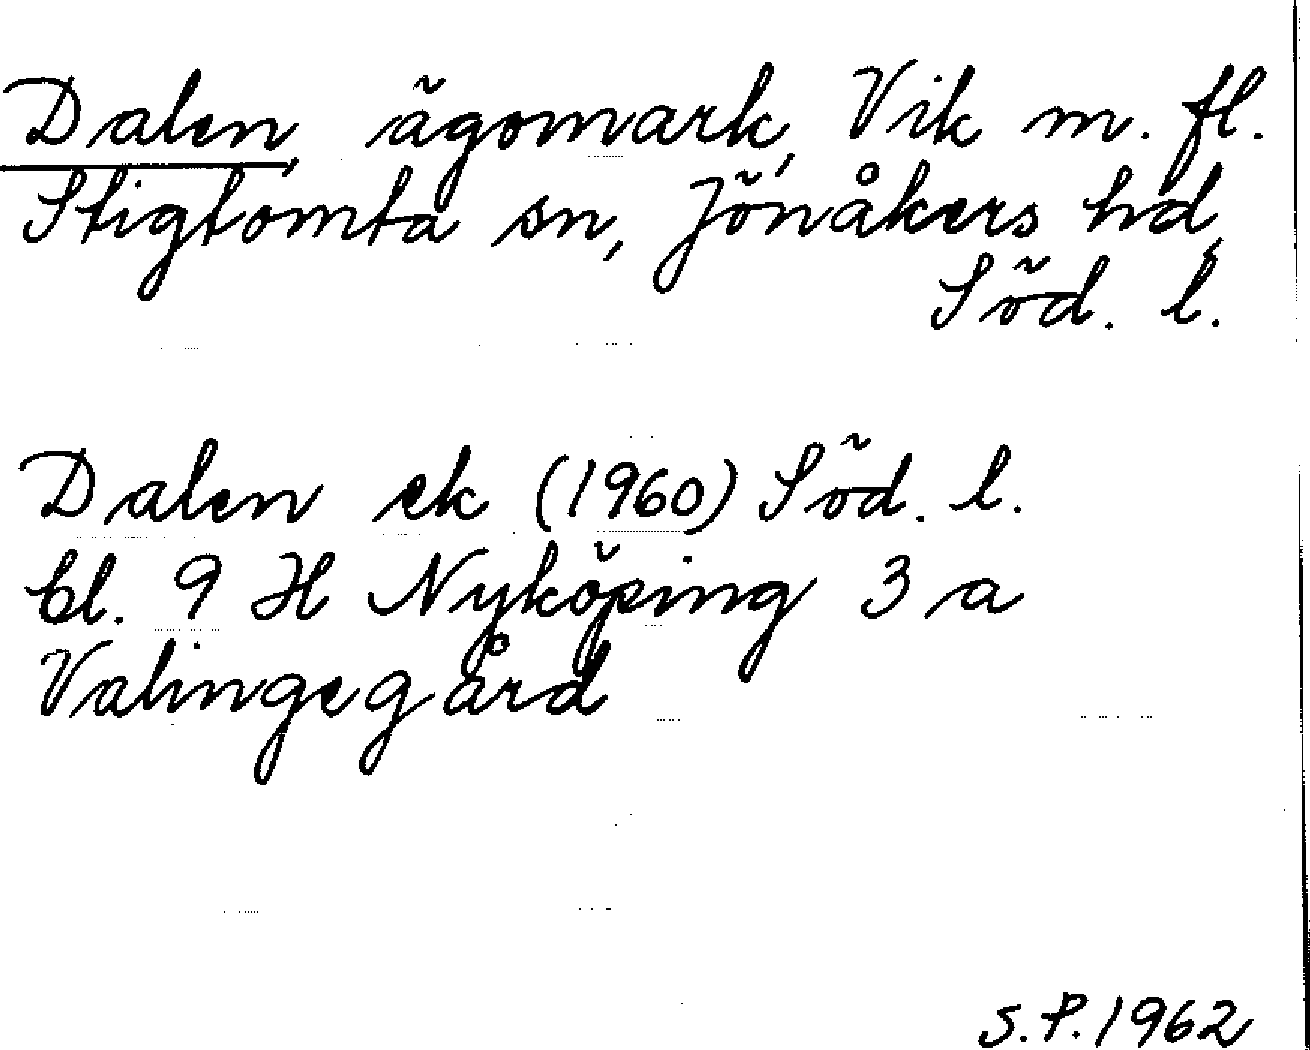 Dalen, ägomark, Vik m. fl.
Stigtomta sn, Jönåkers hd,
Söd. l.
Dalen ek (1960) Söd. l.
bl. 9 H Nyköping 3 a
Valingegård
S.P. 1962